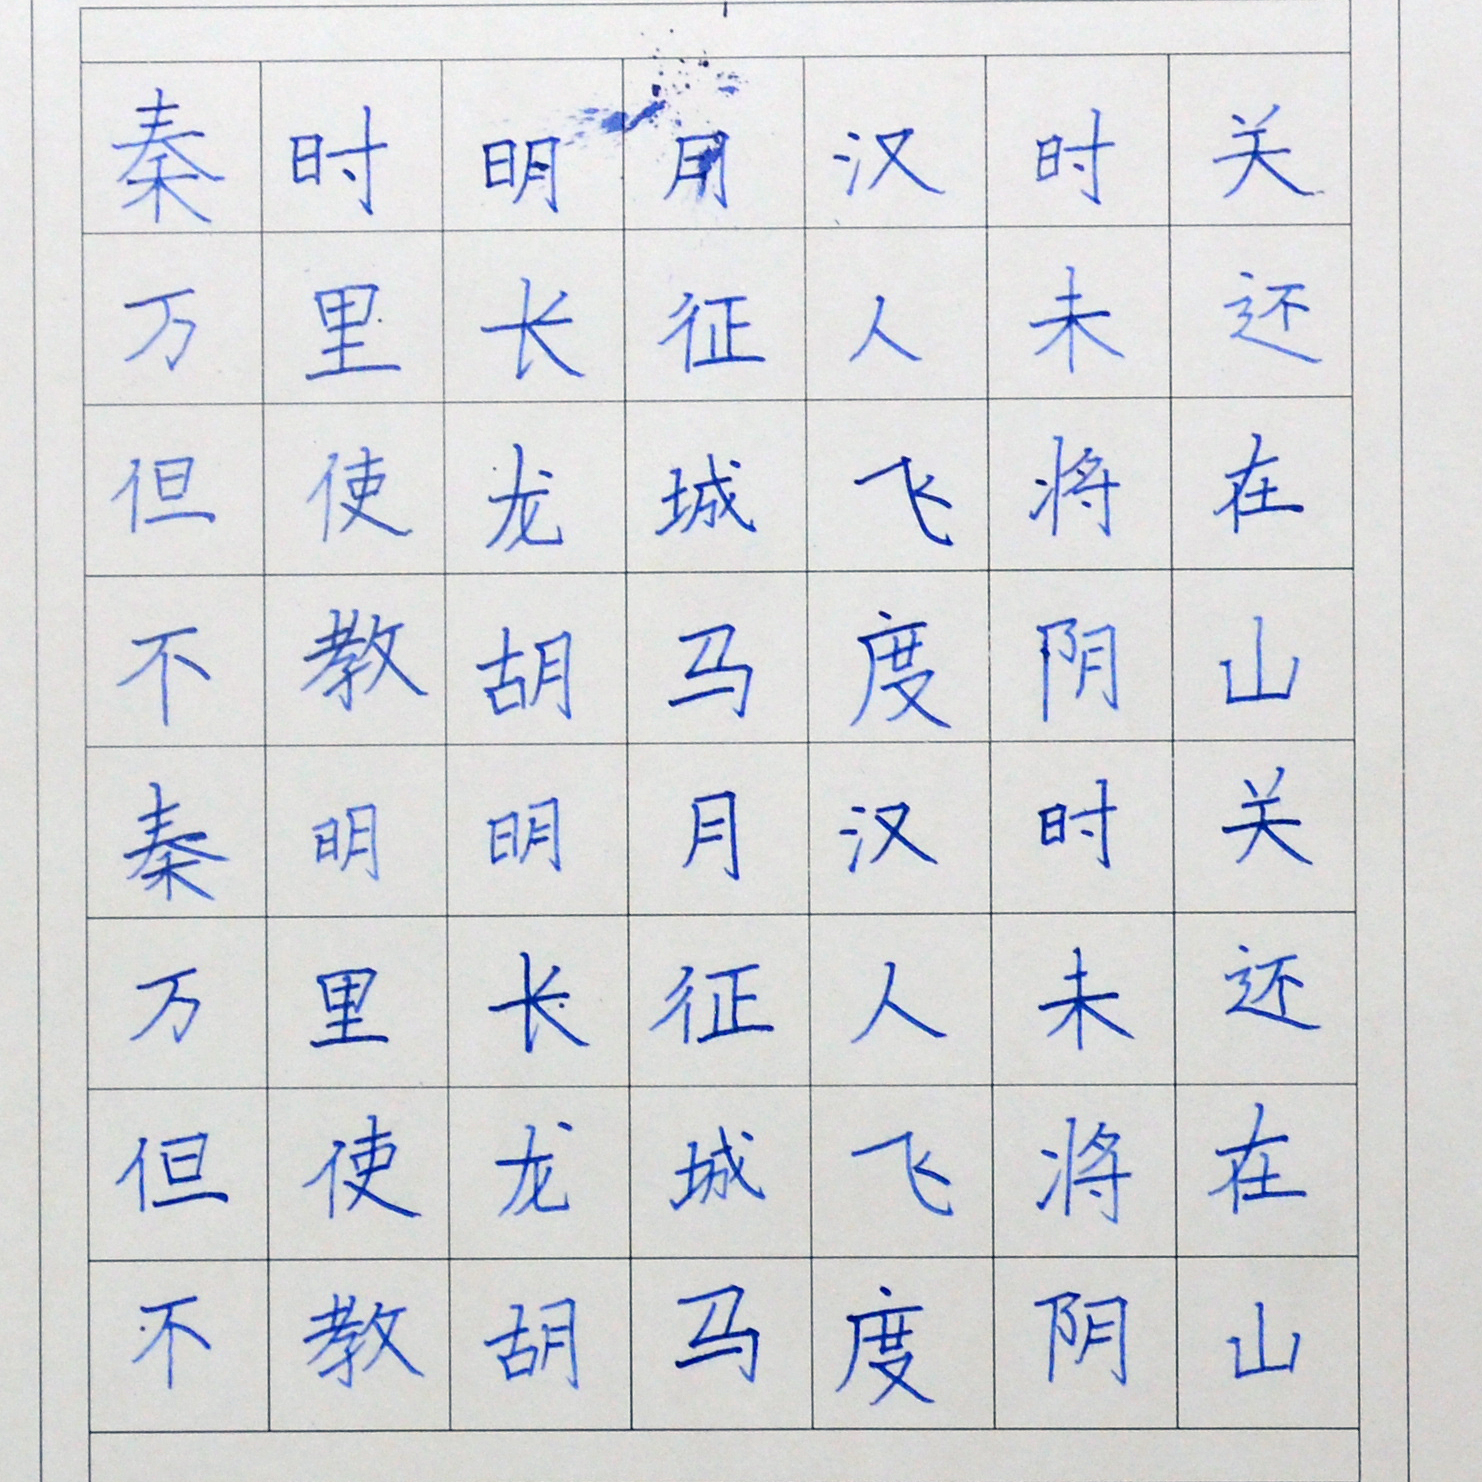 秦时明月汉时关
万里长征人未还
但使龙城飞将在
不教胡马度阴山
秦明明月汉时关
万里长征人未还
但使龙城飞将在
不教胡马度阴山